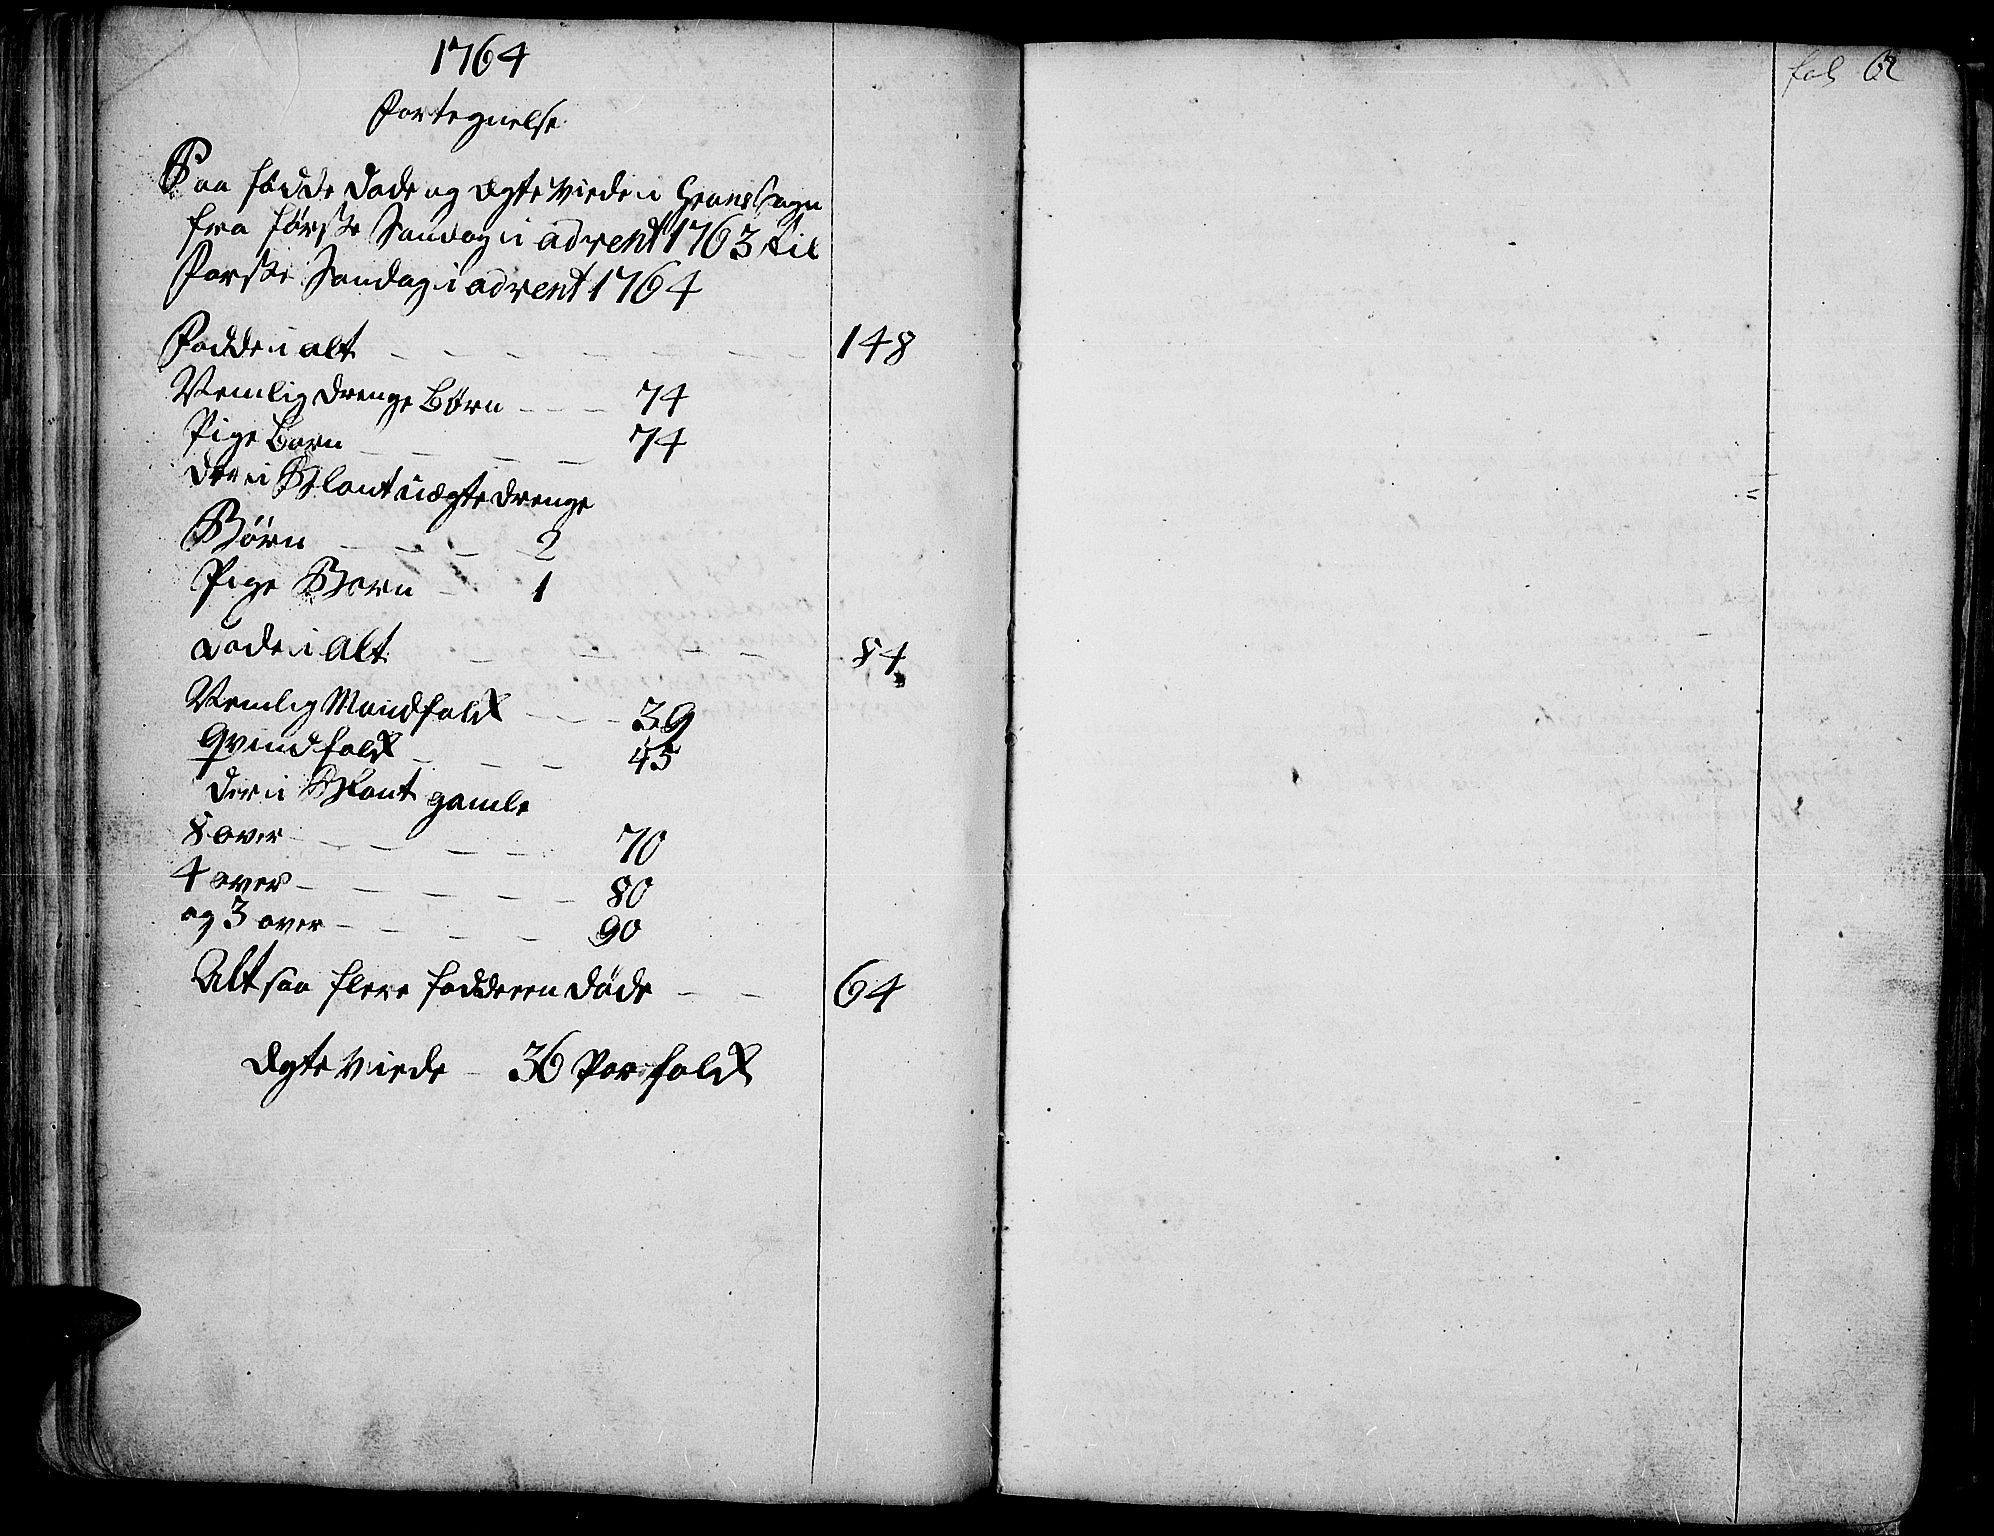 1764
Fortegnelse
Paa födde Döde og Ægte Viede i Grans Sogn
fra förste Söndag i advent 1763 til
Förste Söndag i advent 1764
Födde i alt 148
Nemlig Drenge Börn 74
Pige Börn 74
der i Blant uægte Drenge
Börn 2
Pige Börn 1
Döde i Alt 84
Nemlig Mandfolk 39
Qvindfolk 45
der i Blant gamle
8 over 70
4 over 80
og 3 over 90
Alt saa flere födde en Döde 64
Ægte Viede 36 Par folk
fol 62